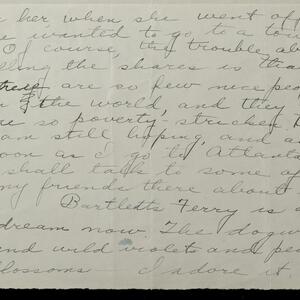 her when she went off
wanted to go to a to
Of course, the trouble ab
lling the shares is tha
there are so few nice peop
in & the world, and they
so poverty-stricken.
am still hoping, and as
soon as I go to Atlanta
shall talk to some of
my friends there about
Bartletts Ferry is a
dream now. The dogw
and wild violets and pea
blossoms — I adore it.